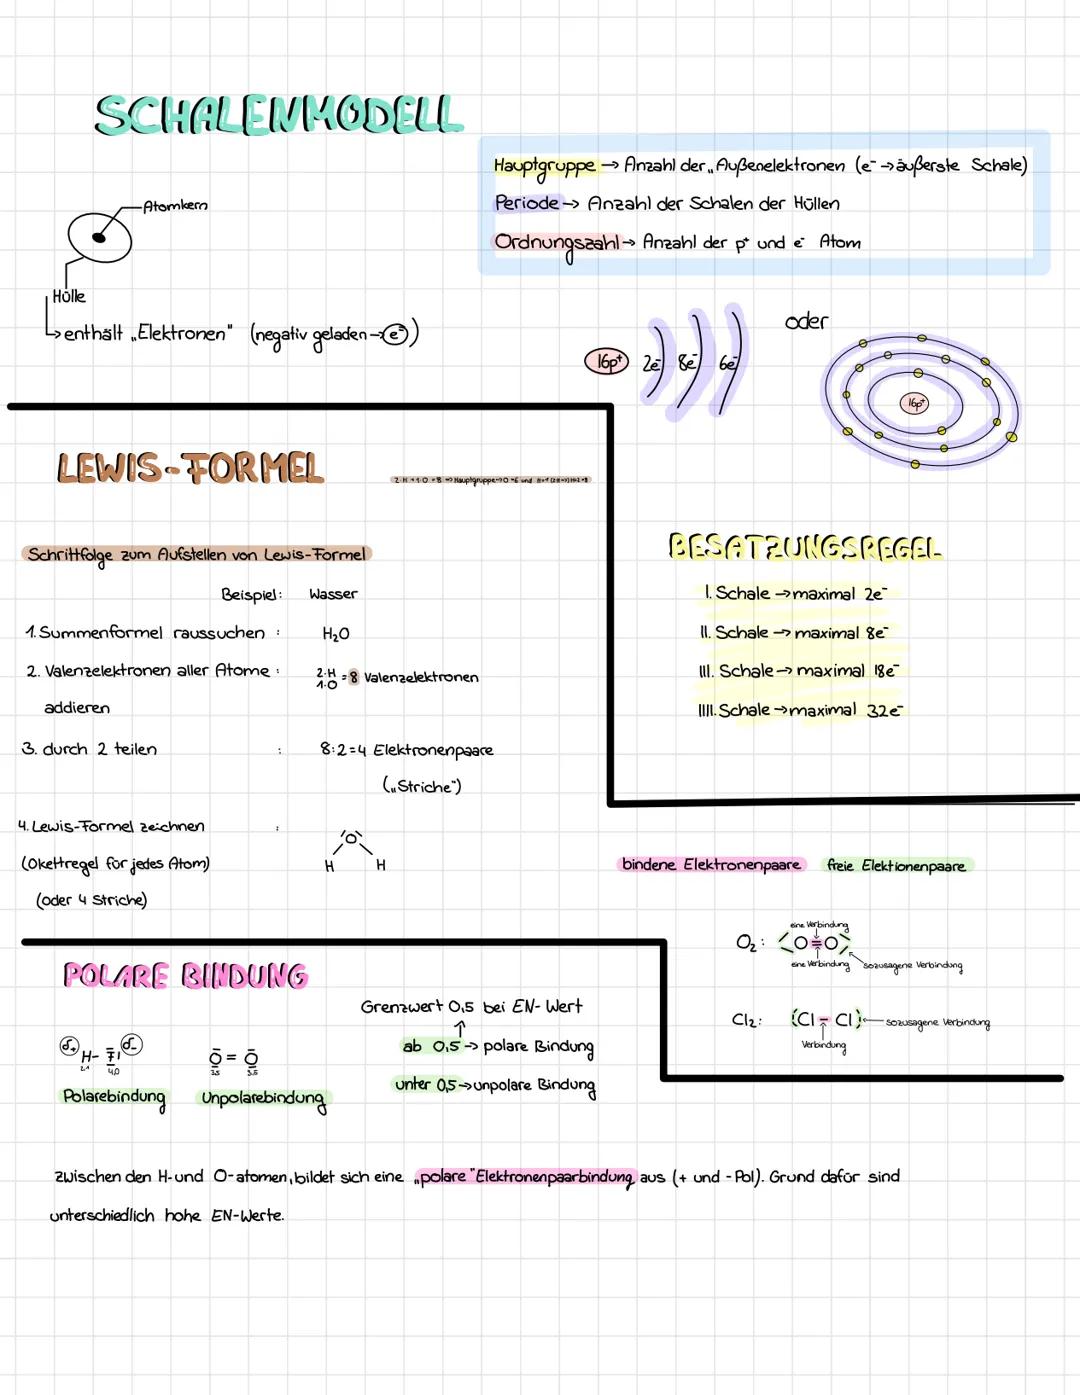 SCHALENMODELL
Hauptgruppe → Anzahl der „Außenelektronen (e⁻ → äußerste Schale)
Periode → Anzahl der Schalen der Hüllen
Ordnungszahl → Anzahl der p⁺ und e⁻ Atom
Atomkern
Hülle
enthält „Elektronen" (negativ geladen → e⁻)
16p⁺ 2e⁻ 8e⁻ 6e⁻
oder
16p⁺
LEWIS-FORMEL
2·H + 1·O = 8 => Hauptgruppe->O=6 und H=1 (2H=>) H=2 =8
Schrittfolge zum Aufstellen von Lewis-Formel
Beispiel: Wasser
1. Summenformel raussuchen : H₂O
2. Valenzelektronen aller Atome :
addieren
2·H
1·O = 8 Valenzelektronen
3. durch 2 teilen : 8:2=4 Elektronenpaare
(„Striche")
4. Lewis-Formel zeichnen :
(Okettregel für jedes Atom)
(oder 4 Striche)
O
H H
BESATZUNGSREGEL
I. Schale → maximal 2e⁻
II. Schale → maximal 8e⁻
III. Schale → maximal 18e⁻
IIII. Schale → maximal 32e⁻
bindene Elektronenpaare freie Elektionenpaare
eine Verbindung
O₂: O=O
eine Verbindung sozusagene Verbindung
Cl₂: Cl - Cl sozusagene Verbindung
Verbindung
POLARE BINDUNG
Grenzwert 0,5 bei EN-Wert
ab 0,5 → polare Bindung
unter 0,5 → unpolare Bindung
δ+ H-Fl δ-
2,1 4,0
O = O
3,5 3,5
Polarebindung Unpolarebindung
zwischen den H-und O-atomen, bildet sich eine „polare "Elektronenpaarbindung aus (+ und - Pol). Grund dafür sind
unterschiedlich hohe EN-Werte.